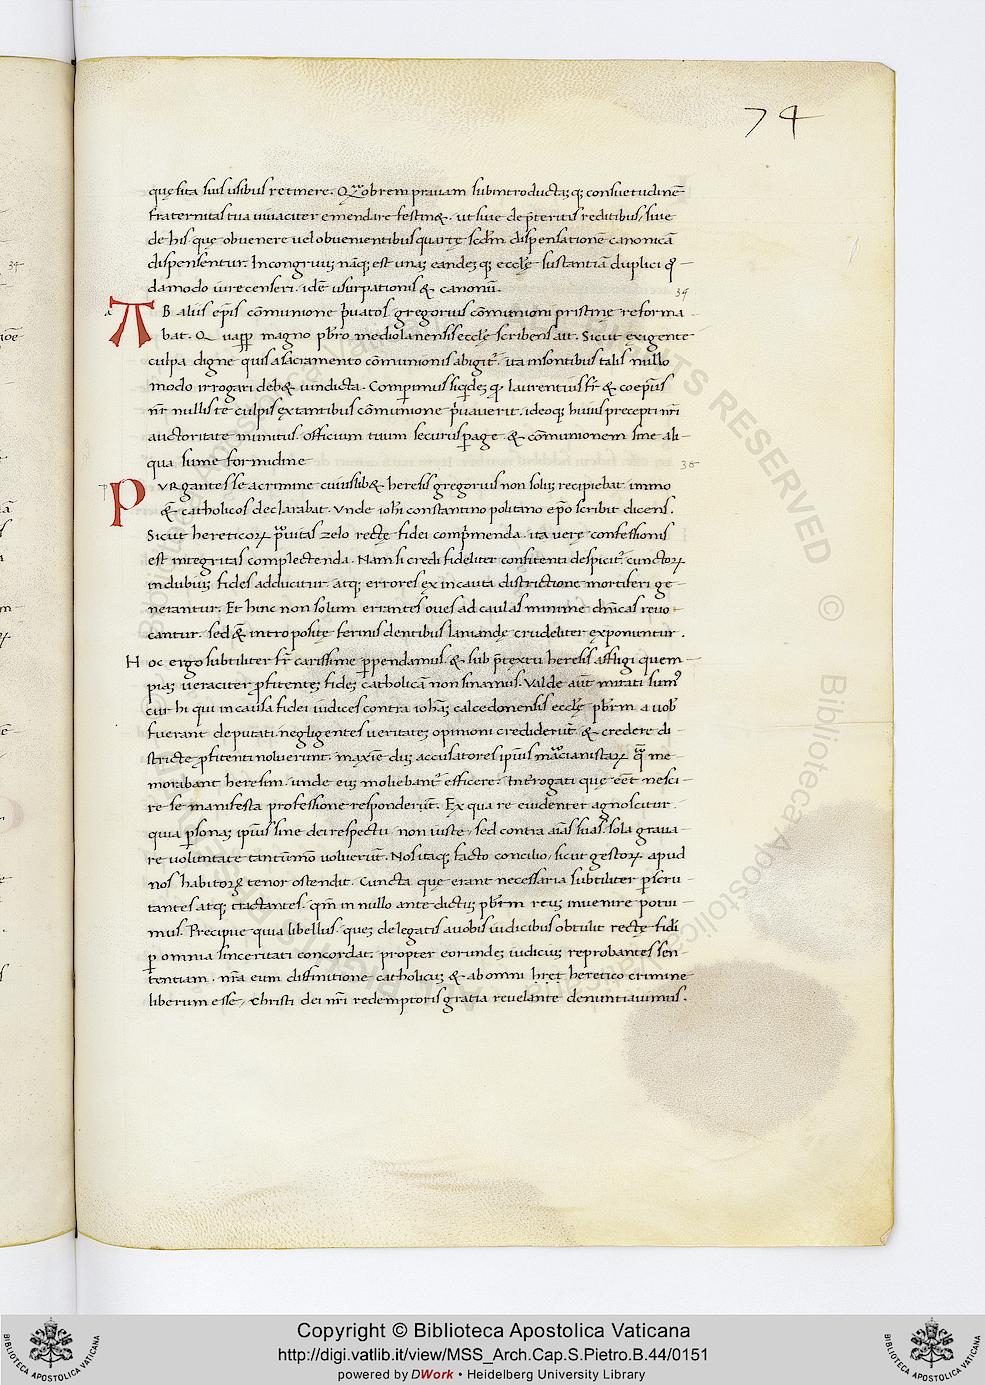 74
quęsita suis usibus retinere. Quāobrem prauam subintroductaȝ qȝ consuetudinē
fraternitas tua uiuaciter emendare festin&. ut siue de p̄teritis reditibus, siue
de his quę obuenere uel obuenientibus quartę scd̄m dispensationē canonicā
dispensentur. Incongruuȝ nāqȝ est unaȝ eandeȝ qȝ ecclę̄ sustantiā duplici qō-
34
dāmodo iure censeri. idē usurpationis & canonū.
34
AB aliis ep̄is cōmunione p̄uatos gregorius cōmunioni pristinę reforma-
bat. Quapp̄ magno pb̄ro mediolanensis ecclę̄ scribens ait. Sicut exigente
culpa digne quis a sacramento cōmunionis abigit᷑. ita insontibus talis nullo
modo irrogari deb& uindicta. Comp̄imus siqideȝ qꝫ laurentius fr̄ & coep̄us
nr̄ nullis te culpis extantibus cōmunione p̄uauerit. ideoqȝ huius precepti nr̄i
auctoritate munitus. officium tuum securus ꝑage & cōmunionem sine ali-
qua sume formidine
35
PURgantes se a crimine cuiuslib& heresis gregorius non soluȝ recipiebat immo
& catholicos declarabat. Vnde ioh̄i constantinopolitano ep̄o scribit dicens.
Sicut hereticoꝝ p̄uitas zelo rectę fidei comp̄menda. ita uerę confessionis
est integritas complectenda. Nam si credi fideliter confitenti despicit᷑. cunctoꝝ
in dubiuȝ fides adducitur. atqȝ errores ex incauta districtione mortiferi ge-
nerantur. Et hinc non solum errantes oues ad caulas minime dn̄icas reuo-
cantur. sed & intro positę ferinis dentibus laniandę crudeliter exponuntur.
Hoc ergo subtiliter fr̄ carissime ꝑpendamus. & sub p̄textu heresis affligi quem-
piaȝ ueraciter ꝓfitenteȝ fideȝ catholicā non sinamus. Valde aut̄ mirati sum᷒
cur hi qui in causa fidei iudices contra ioh̄aȝ calcedonensis ecclę̄ pb̄rm a uob᷒
fuerant deputati negligentes ueritateȝ opinioni crediderūt & credere di-
stricte ꝓfitenti noluerint. maximē duȝ accusatores ipsius marcianistaꝝ quā me-
morabant heresim. unde euȝ moliebant᷑ efficere. Interrogati quę eēt nesci-
re se manifesta professione responderūt. Ex qua re euidenter agnoscitur.
quia ꝑsonaȝ ipsius sine dei respectu. non iuste. sed contra aīas suas. sola graua-
re uoluntate tantūmō uoluerūt. Nos itaqȝ facto concilio. sicut gestoꝝ apud
nos habitoꝝ tenor ostendit. Cuncta quę erant necessaria subtiliter ꝑscru-
tantes atqȝ tractantes. qm̄ in nullo ante dictuȝ pb̄rm reuȝ inuenire potui-
mus. Precipue quia libellus. queȝ delegatis a uobis iudicibus obtulit rectę fidēi
ꝑ omnia sinceritati concordat. propter eorundeȝ iudicuȝ reprobantes sen-
tentiam. nr̄a eum diffinitione catholicuȝ & ab omni hręt heretico crimine
liberum esse, christi dei nr̄i redemptoris gratia reuelante denuntiauimus.
Copyright © Biblioteca Apostolica Vaticana
http://digi.vatlib.it/view/MSS_Arch.Cap.S.Pietro.B.44/0151
powered by DWork • Heidelberg University Library